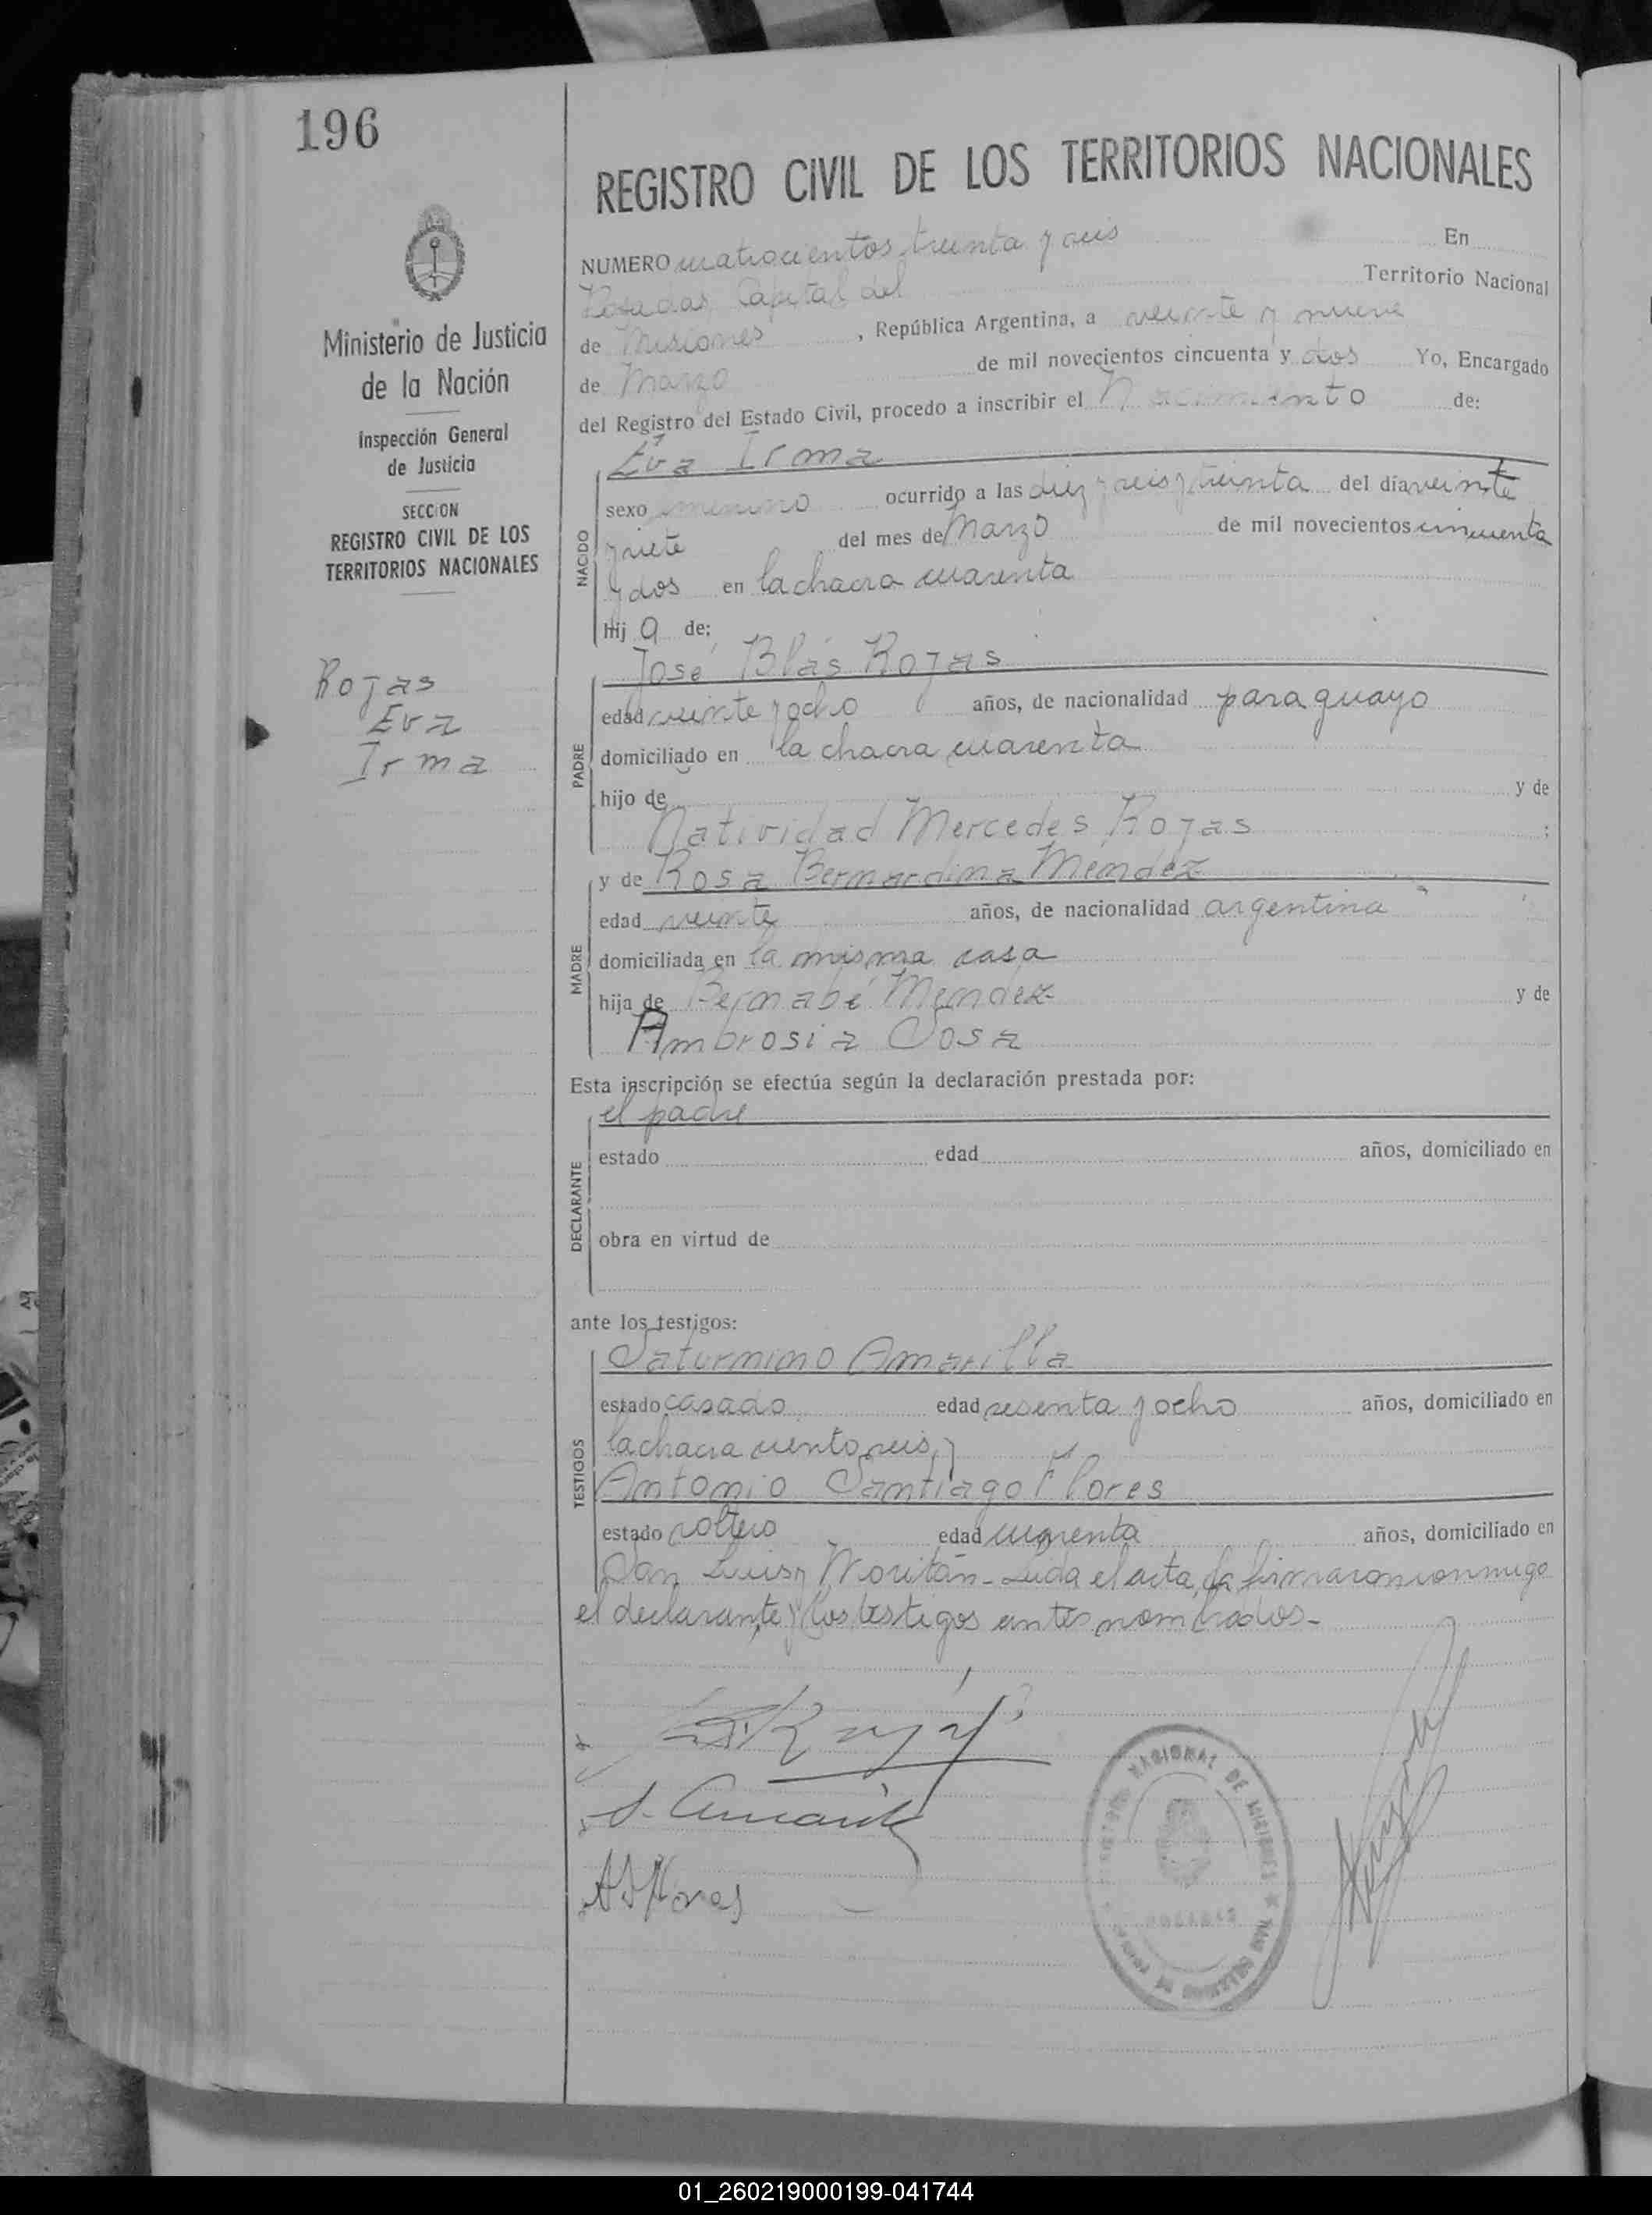 196
REGISTRO CIVIL DE LOS TERRITORIOS NACIONALES
Ministerio de Justicia
de la Nación
Inspección General
de Justicia
SECCION
REGISTRO CIVIL DE LOS
TERRITORIOS NACIONALES
Rojas
Eva
Irma
NUMERO cuatrocientos treinta y seis En
Posadas Capital del Territorio Nacional
de Misiones, República Argentina, a veinte y nueve
de Marzo de mil novecientos cincuenta y dos Yo, Encargado
del Registro del Estado Civil, procedo a inscribir el Nacimiento de:
NACIDO
Eva Irma
sexo femenino ocurrido a las diez y seis y treinta del día veinte
y siete del mes de Marzo de mil novecientos cincuenta
y dos en la chacra cuarenta
Hij a de:
PADRE
José Blás Rojas
edad veinte y ocho años, de nacionalidad paraguayo
domiciliado en la chacra cuarenta
hijo de y de
Natividad Mercedes Rojas ;
MADRE
y de Rosa Bernardina Mendez
edad veinte años, de nacionalidad argentina
domiciliada en la misma casa
hija de Bernabé Mendez y de
Ambrosia Sosa
Esta inscripción se efectúa según la declaración prestada por:
DECLARANTE
el padre
estado edad años, domiciliado en
obra en virtud de
ante los testigos:
TESTIGOS
Saturnino Amarilla
estado casado edad sesenta y ocho años, domiciliado en
la chacra ciento seis, y
Antonio Santiago Flores
estado soltero edad cuarenta años, domiciliado en
San Luis y Moritán - Leida el acta, la firmaron conmigo
el declarante y los testigos antes nombrados -
S. Amarilla
A S Flores
NACIONAL DE MISIONES
POSADAS
01_260219000199-041744